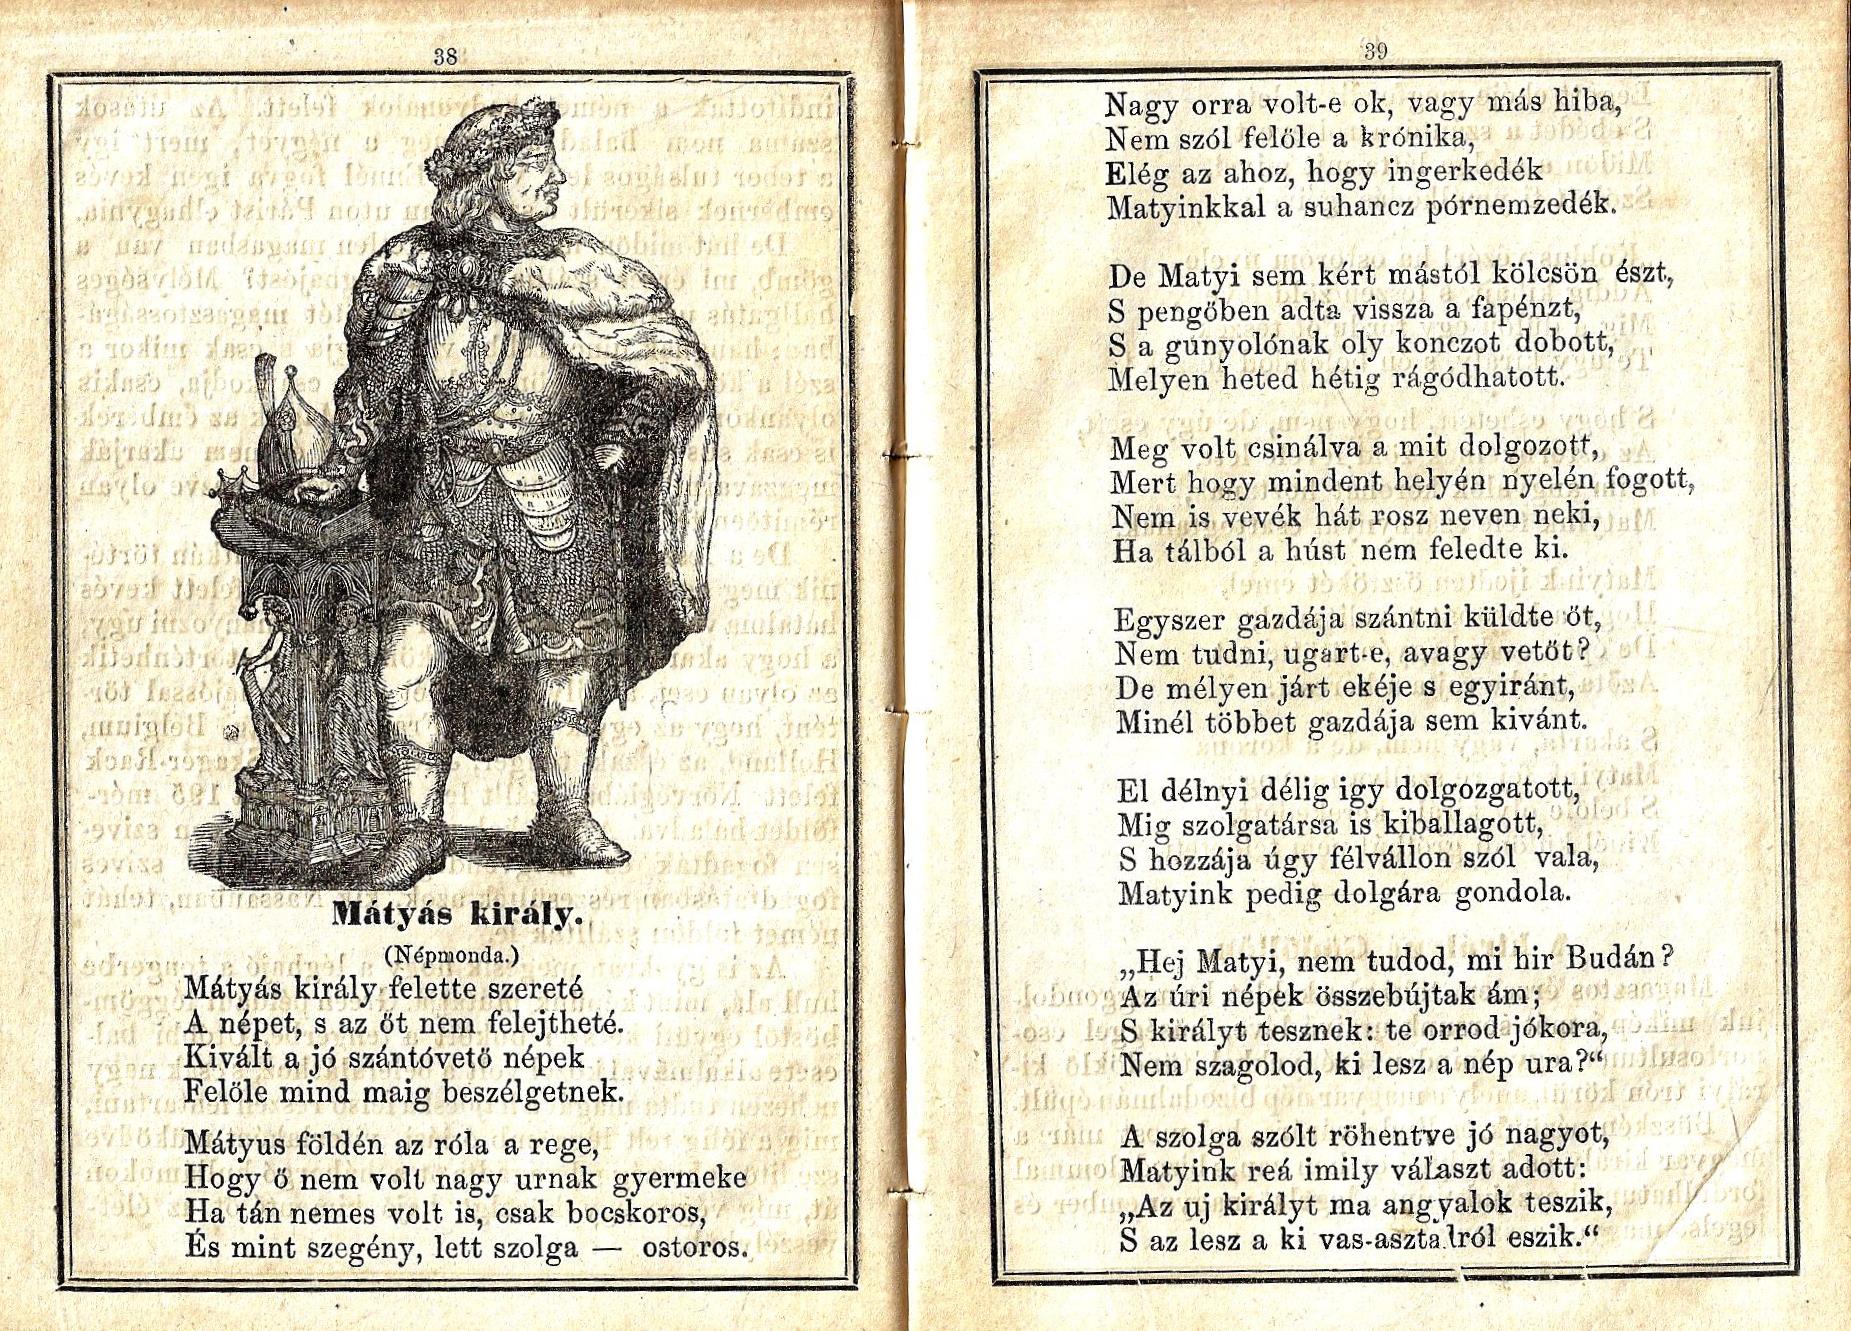 38
Mátyás király.
(Népmonda.)
Mátyás király felette szereté
A népet, s az őt nem felejtheté.
Kivált a jó szántóvető népek
Felőle mind maig beszélgetnek.
Mátyus földén az róla a rege,
Hogy ő nem volt nagy urnak gyermeke
Ha tán nemes volt is, csak bocskoros,
És mint szegény, lett szolga — ostoros.
39
Nagy orra volt-e ok, vagy más hiba,
Nem szól felőle a krónika,
Elég az ahoz, hogy ingerkedék
Matyinkkal a suhancz pórnemzedék.
De Matyi sem kért mástól kölcsön észt,
S pengőben adta vissza a fapénzt,
S a gunyolónak oly konczot dobott,
Melyen heted hétig rágódhatott.
Meg volt csinálva a mit dolgozott,
Mert hogy mindent helyén nyelén fogott,
Nem is vevék hát rosz neven neki,
Ha tálból a húst nem feledte ki.
Egyszer gazdája szántni küldte őt,
Nem tudni, ugart-e, avagy vetőt?
De mélyen járt ekéje s egyiránt,
Minél többet gazdája sem kivánt.
El délnyi délig igy dolgozgatott,
Mig szolgatársa is kiballagott,
S hozzája úgy félvállon szól vala,
Matyink pedig dolgára gondola.
„Hej Matyi, nem tudod, mi hir Budán?
Az úri népek összebújtak ám;
S királyt tesznek: te orrod jókora,
Nem szagolod, ki lesz a nép ura?“
A szolga szólt röhentve jó nagyot,
Matyink reá imily választ adott:
„Az uj királyt ma angyalok teszik,
S az lesz a ki vas-asztalról eszik.“